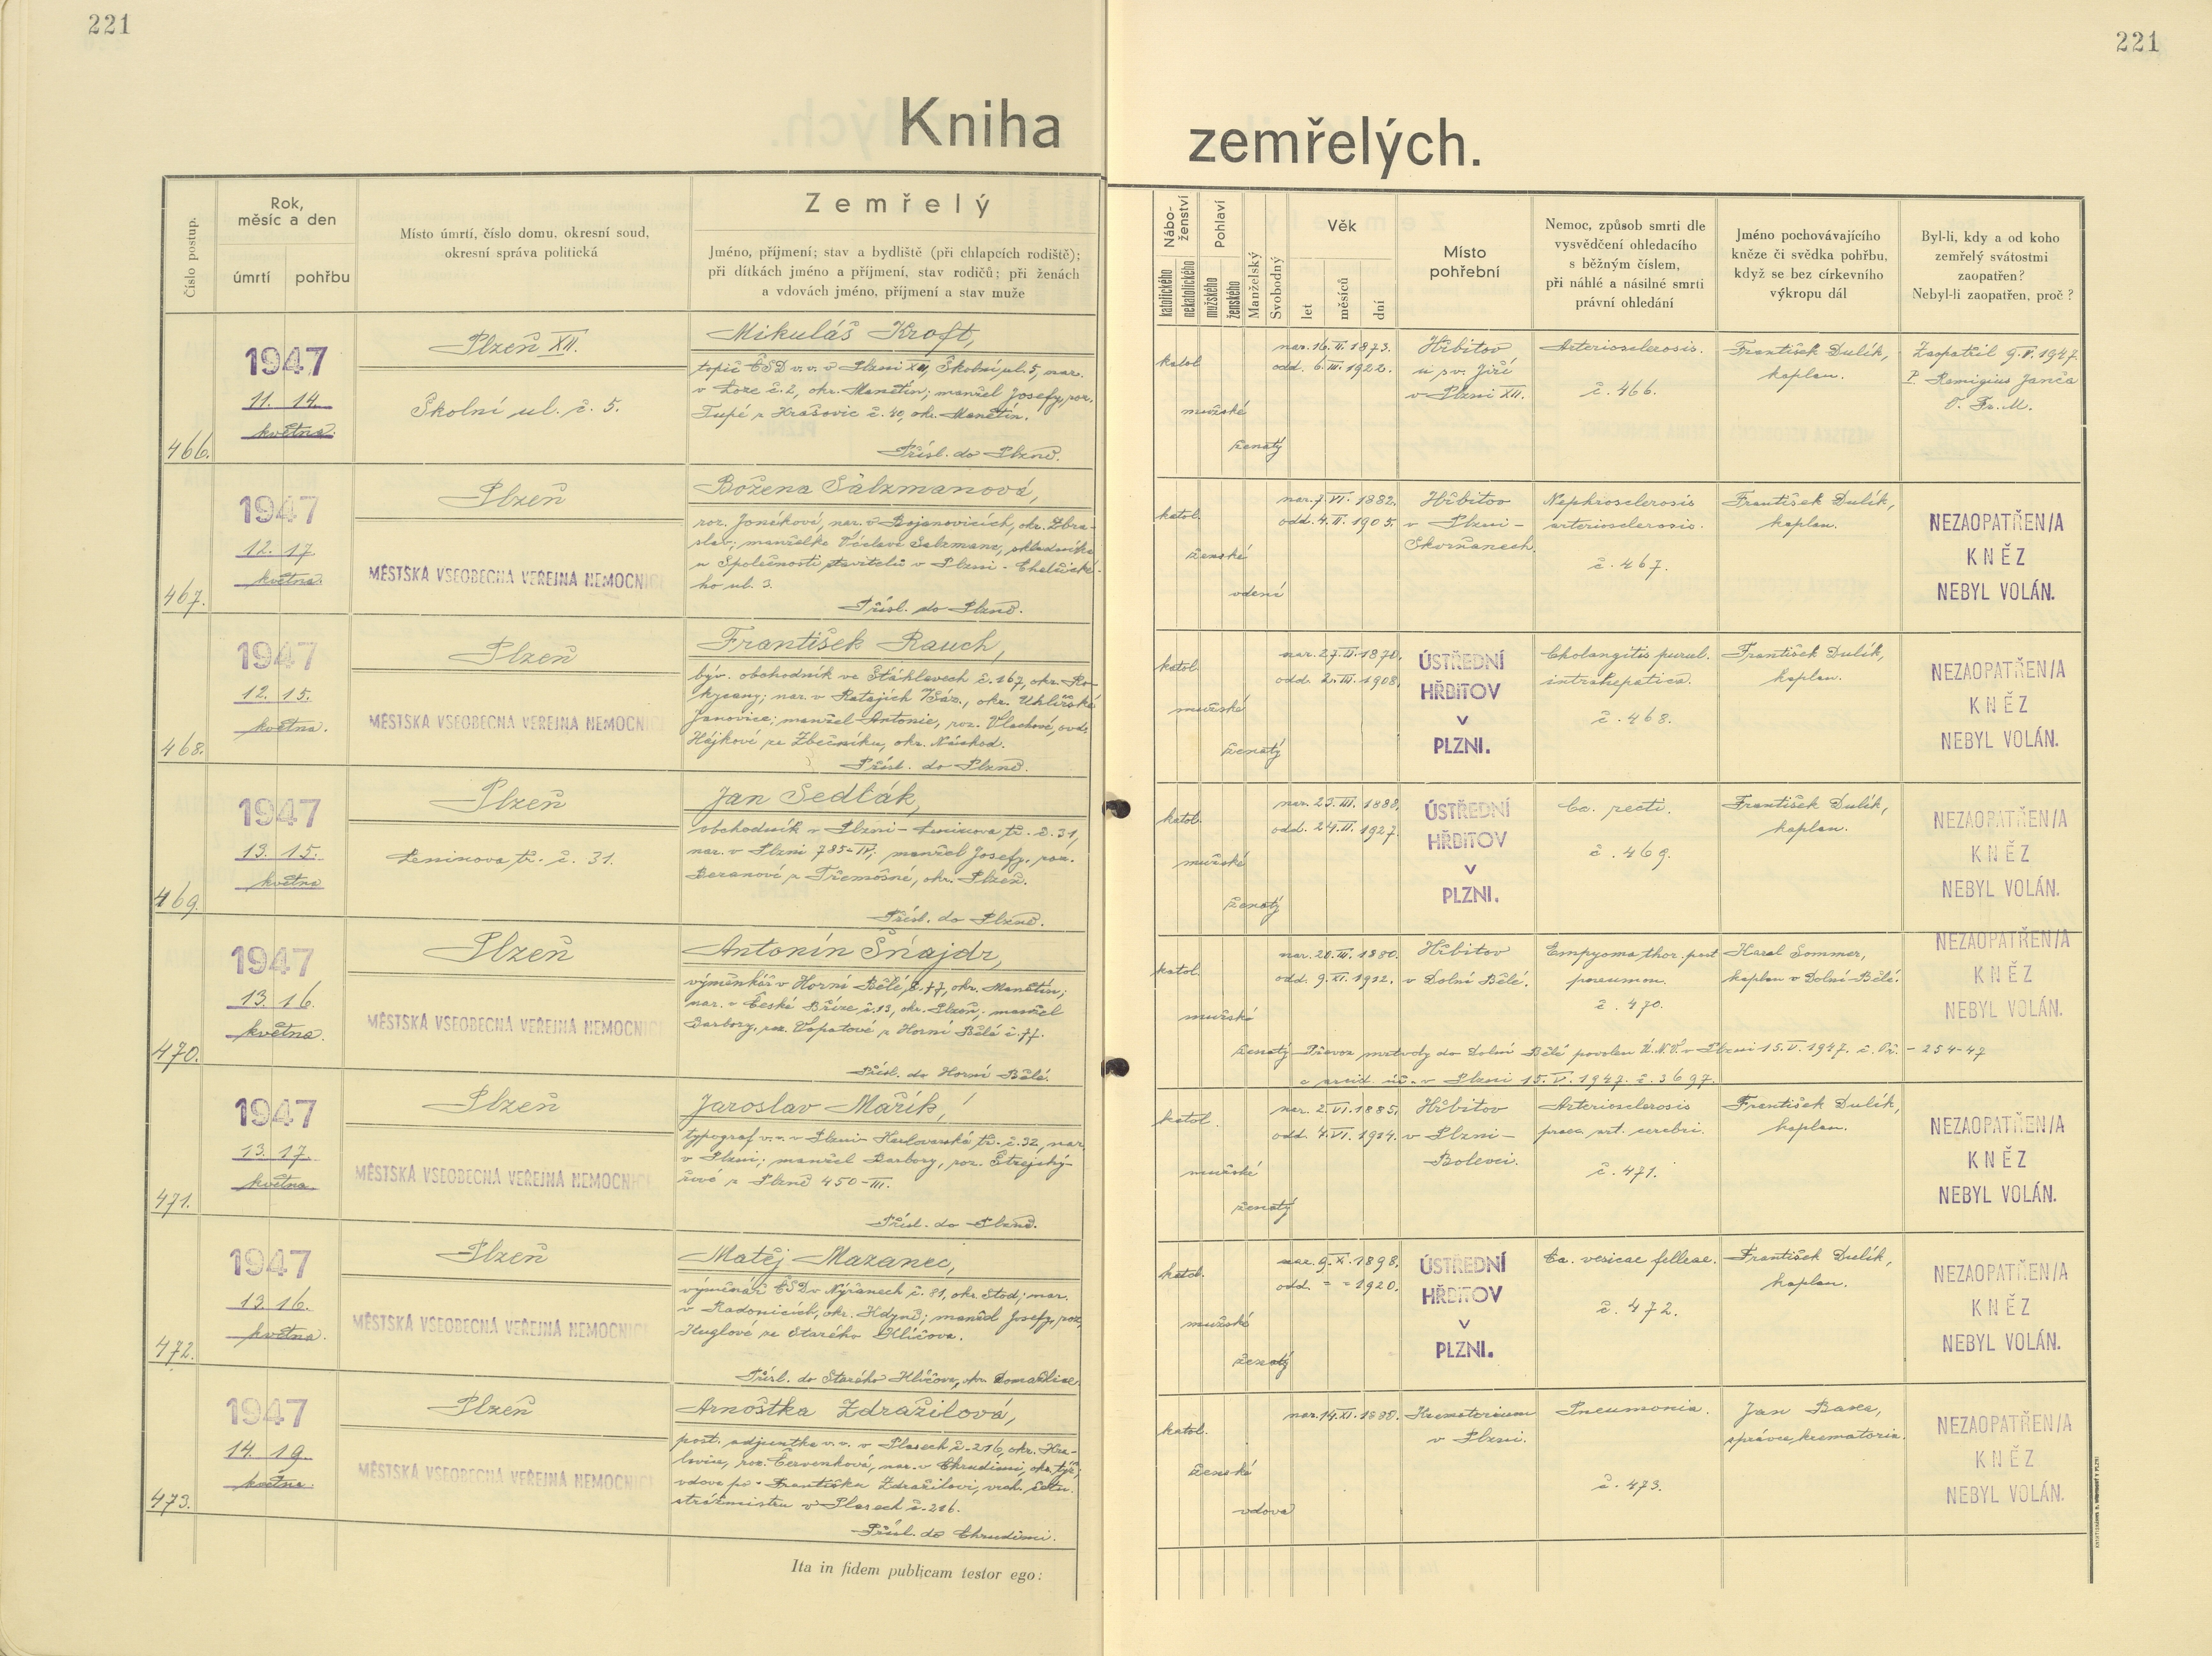 221
221
Kniha zemřelých.
Číslo postup.
Rok,
měsíc a den
úmrtí
pohřbu
Místo úmrtí, číslo domu, okresní soud,
okresní správa politická
Zemřelý
Jméno, příjmení; stav a bydliště (při chlapcích rodiště);
při dítkách jméno a příjmení, stav rodičů; při ženách
a vdovách jméno, příjmení a stav muže
Nábo-
ženství
katolického
nekatolického
Pohlaví
mužského
ženského
Manželský
Svobodný
Věk
let
měsíců
dní
Místo
pohřební
Nemoc, způsob smrti dle
vysvědčení ohledacího
s běžným číslem,
při náhlé a násilné smrti
právní ohledání
Jméno pochovávajícího
kněze či svědka pohřbu,
když se bez církevního
výkropu dál
Byl-li, kdy a od koho
zemřelý svátostmi
zaopatřen?
Nebyl-li zaopatřen, proč?
466.
1947
11. 14.
května.
Plzeň XII.
Školní ul. č. 5.
Mikuláš Kroft,
topič ČSD v. v. v Plzni XII, Školní ul. 5, nar.
v Loze č. 2, okr. Manětín; manžel Josefy, roz.
Tupé z Hrášovic č. 40, okr. Manětín.
Přísl. do Plzně.
katol.
mužské
ženatý
nar. 16. II. 1873.
odd. 6. III. 1922.
Hřbitov
u sv. Jiří
v Plzni XII.
Arteriosclerosis.
č. 466.
František Dulík,
kaplan.
Zaopatřil 9. V. 1947.
P. Remigius Janča
O. Fr. M.
467.
1947
12. 17.
května.
Plzeň
MĚSTSKÁ VŠEOBECNÁ VEŘEJNÁ NEMOCNICE
Božena Salzmanová,
roz. Jonáková, nar. v Bojanovicích, okr. Zbra-
slav; manželka Václava Salzmana, skladníka
u Společnosti stavitelů v Plzni - Chelčické-
ho ul. 3.
Přísl. do Plzně.
katol.
ženské
vdaná
nar. 7. VI. 1882.
odd. 4. II. 1905.
Hřbitov
v Plzni -
Skvrňanech.
Nephrosclerosis
arteriosclerosis.
č. 467.
František Dulík,
kaplan.
NEZAOPATŘEN/A
KNĚZ
NEBYL VOLÁN.
468.
1947
12. 15.
května.
Plzeň
MĚSTSKÁ VŠEOBECNÁ VEŘEJNÁ NEMOCNICE
František Rauch,
býv. obchodník ve Šťáhlavech č. 167, okr. Ro-
kycany; nar. v Ratajích n/Sáz., okr. Uhlířské
Janovice; manžel Antonie, roz. Vlachové, ovd.
Hájkové ze Zbečníku, okr. Náchod.
Přísl. do Plzně.
katol.
mužské
ženatý
nar. 27. II. 1870.
odd. 2. III. 1908.
ÚSTŘEDNÍ
HŘBITOV
V
PLZNI.
Cholangitis purul.
intrahepatica.
č. 468.
František Dulík,
kaplan.
NEZAOPATŘEN/A
KNĚZ
NEBYL VOLÁN.
469.
1947
13. 15.
května
Plzeň
Leninova tř. č. 31.
Jan Sedlák,
obchodník v Plzni - Leninova tř. č. 31,
nar. v Plzni 785-IV; manžel Josefy, roz.
Beranové z Třemošné, okr. Plzeň.
Přísl. do Plzně.
katol.
mužské
ženatý
nar. 23. III. 1888.
odd. 24. II. 1927.
ÚSTŘEDNÍ
HŘBITOV
V
PLZNI.
Ca. recti.
č. 469.
František Dulík,
kaplan.
NEZAOPATŘEN/A
KNĚZ
NEBYL VOLÁN.
470.
1947
13. 16.
května.
Plzeň
MĚSTSKÁ VŠEOBECNÁ VEŘEJNÁ NEMOCNICE
Antonín Šnajdr,
výměnkář v Horní Bělé, č. 77, okr. Manětín;
nar. v České Bříze č. 13, okr. Plzeň; manžel
Barbory, roz. Lopatové z Horní Bělé č. 77.
Přísl. do Horní Bělé.
katol.
mužské
ženatý
nar. 20. III. 1880.
odd. 9. XI. 1912.
Hřbitov
v Dolní Bělé.
Empyoma thor. post
pneumon.
č. 470.
Karel Sommer,
kaplan v Dolní Bělé.
NEZAOPATŘEN/A
KNĚZ
NEBYL VOLÁN.
Převoz mrtvoly do Dolní Bělé povolen Ú.N.V. v Plzni 15. V. 1947. č. Př. - 254-47
a arcid. úř. v Plzni 15. V. 1947. č. 3697.
471.
1947
13. 17.
května.
Plzeň
MĚSTSKÁ VŠEOBECNÁ VEŘEJNÁ NEMOCNICE
Jaroslav Mařík,
typograf v. v. v Plzni - Karlovarská tř. č. 32, nar.
v Plzni; manžel Barbory, roz. Štrejchý-
řové z Plzně 450-III.
Přísl. do Plzně.
katol.
mužské
ženatý
nar. 2. VI. 1885.
odd. 4. VI. 1914.
Hřbitov
v Plzni -
Bolevci.
Arteriosclerosis
praec. art. cerebri.
č. 471.
František Dulík,
kaplan.
NEZAOPATŘEN/A
KNĚZ
NEBYL VOLÁN.
472.
1947
13. 16.
května.
Plzeň
MĚSTSKÁ VŠEOBECNÁ VEŘEJNÁ NEMOCNICE
Matěj Mazanec,
výměnář ČSD v Nýřanech č. 81, okr. Stod; nar.
v Radonicích, okr. Kdyně; manžel Josefy, roz.
Kuglové ze Starého Klíčova.
Přísl. do Starého Klíčova, okr. Domažlice.
katol.
mužské
ženatý
nar. 9. X. 1898.
odd. = = 1920.
ÚSTŘEDNÍ
HŘBITOV
V
PLZNI.
Ca. vesicae felleae.
č. 472.
František Dulík,
kaplan.
NEZAOPATŘEN/A
KNĚZ
NEBYL VOLÁN.
473.
1947
14. 19.
května.
Plzeň
MĚSTSKÁ VŠEOBECNÁ VEŘEJNÁ NEMOCNICE
Arnoštka Zdražilová,
post. adjunktka v. v. v Plasech č. 216, okr. Kra-
lovice, roz. Červenková, nar. v Chrudimi, okr. týž;
vdova po Františku Zdražilovi, vrch. četn.
strážmistru v Plasech č. 216.
Přísl. do Chrudimi.
katol.
ženské
vdova
nar. 14. XI. 1880.
Krematorium
v Plzni.
Pneumonia.
č. 473.
Jan Basea,
správce krematoria.
NEZAOPATŘEN/A
KNĚZ
NEBYL VOLÁN.
Ita in fidem publicam testor ego: